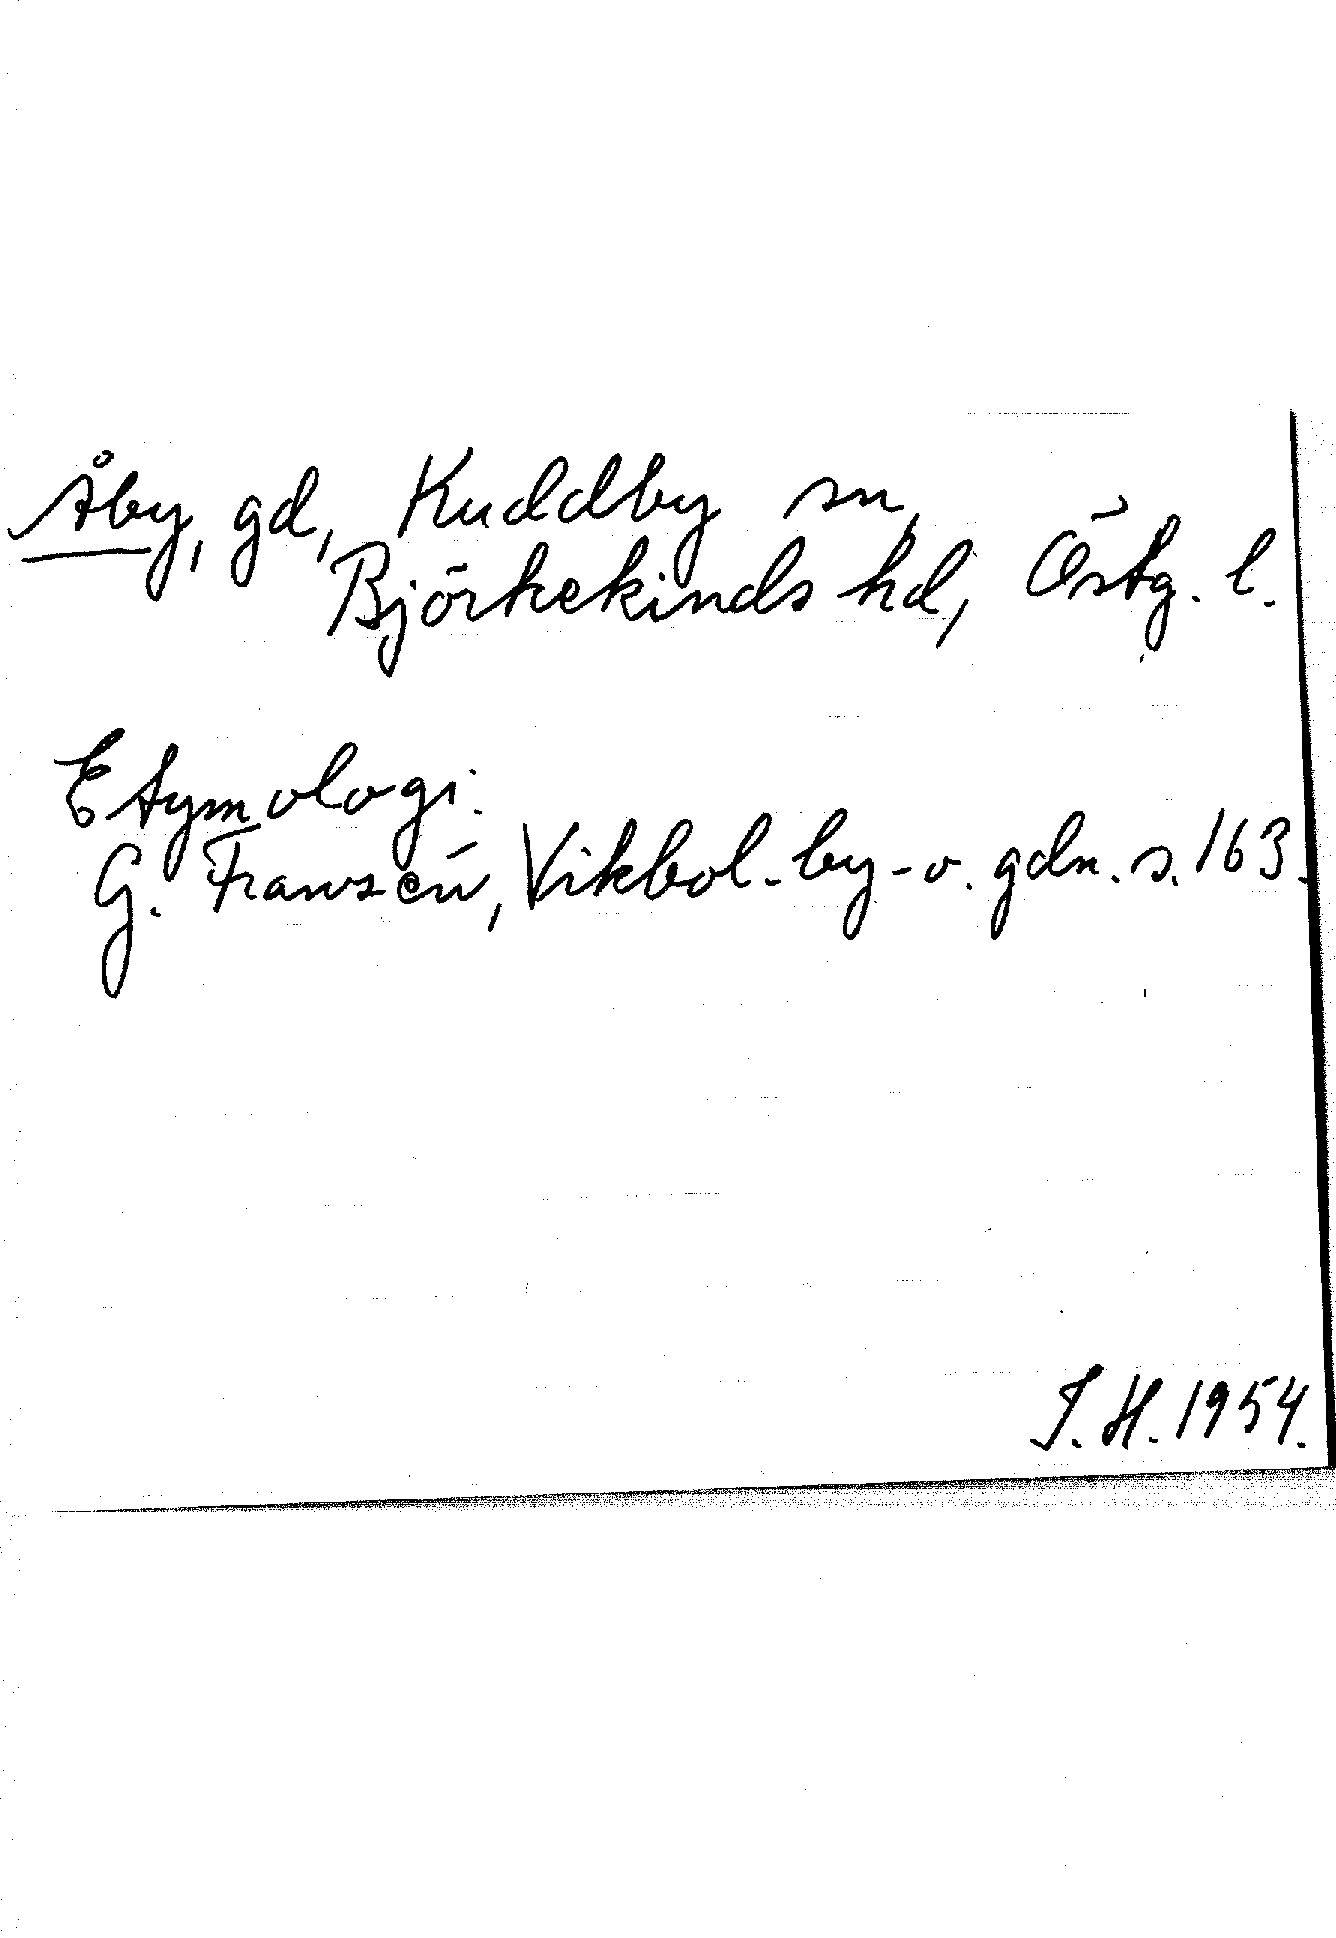 Åby, gd, Kuddby sn,
Björkekinds hd, Östg. l.
Etymologi.
G. Franzén, Vikbol. by- o. gdn. s. 163.
I. H. 1954.